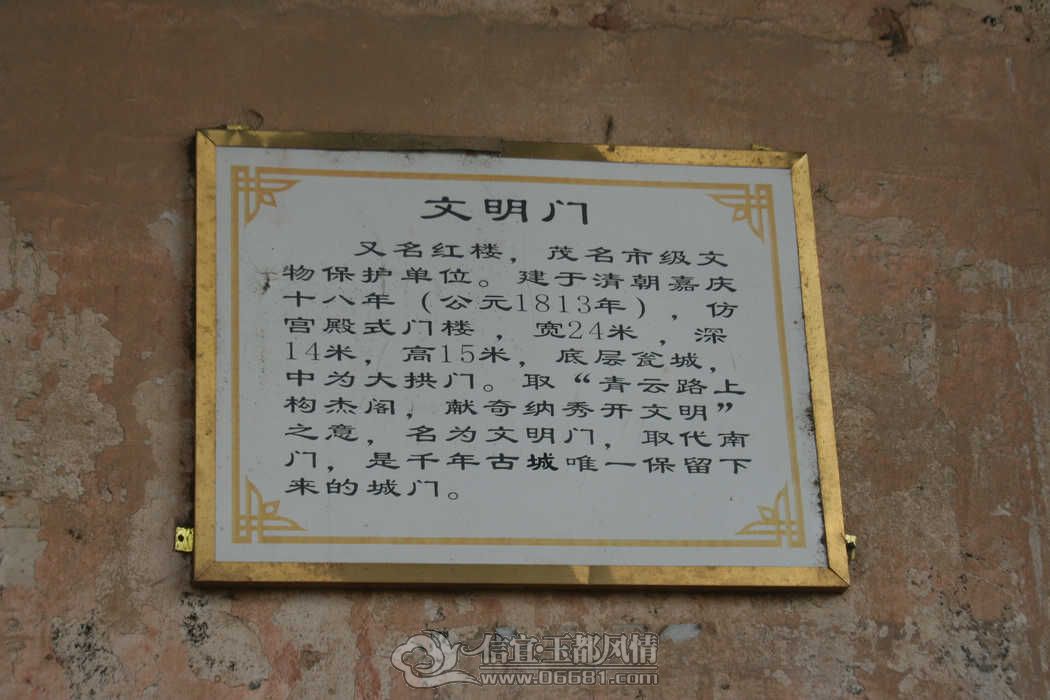 文明门
又名红楼，茂名市级文
物保护单位。建于清朝嘉庆
十八年（公元1813年），仿
宫殿式门楼，宽24米，深
14米，高15米，底层瓮城，
中为大拱门。取“青云路上
构杰阁，献奇纳秀开文明”
之意，名为文明门，取代南
门，是千年古城唯一保留下
来的城门。
信宜·玉都风情
www.06681.com